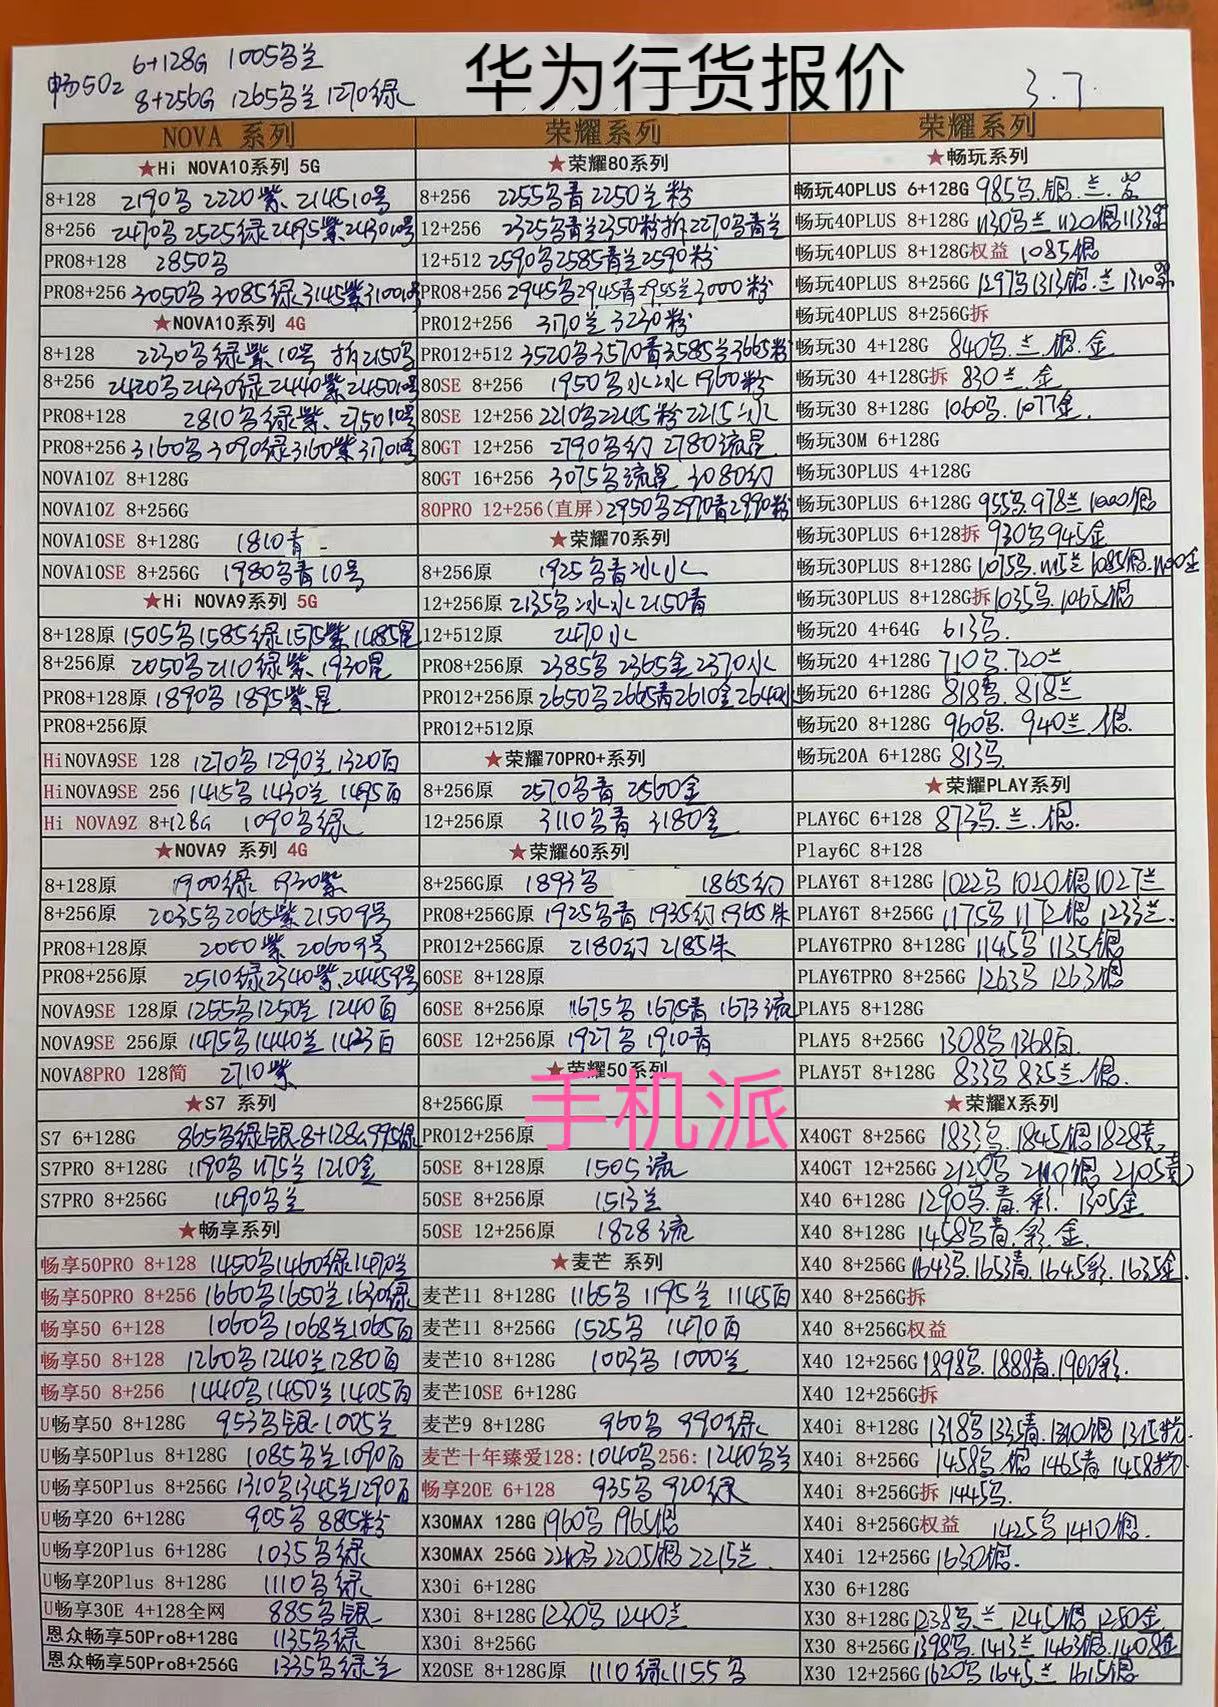 华为行货报价
3.7.
畅50z 6+128G 1005乌兰
8+256G 1265乌兰1270绿
NOVA 系列
★Hi NOVA10系列 5G
8+128 2190乌 2220紫. 214510号
8+256 2470乌 2525绿 2495紫. 243010号
PRO8+128 2850乌
PRO8+256 3050乌 3085绿 3145紫 310010号
★NOVA10系列 4G
8+128 2230乌绿紫.10号 拆2150乌
8+256 2420乌2430绿2440紫245010号
PRO8+128 2810乌绿紫. 275010号
PRO8+256 3160乌 3090绿3160紫317010号
NOVA10Z 8+128G
NOVA10Z 8+256G
NOVA10SE 8+128G 1810青
NOVA10SE 8+256G 1980乌青10号
★Hi NOVA9系列 5G
8+128原 1505乌1585绿1575紫1485星
8+256原 2050乌2110绿紫. 1930星
PRO8+128原 1890乌 1895紫.星
PRO8+256原
HiNOVA9SE 128 1270乌1290兰1320百
HiNOVA9SE 256 1415乌1430兰 1495百
Hi NOVA9Z 8+128G 1090乌绿
★NOVA9 系列 4G
8+128原 1900绿 1930紫
8+256原 2035乌2065紫21509号
PRO8+128原 2000紫 20609号
PRO8+256原 2510绿2340紫.24459号
NOVA9SE 128原 1255乌1250兰 1240百
NOVA9SE 256原 1475乌1440兰 1433百
NOVA8PRO 128简 2710紫
★S7 系列
S7 6+128G 865乌绿银 8+128G995绿
S7PRO 8+128G 1190乌 1175兰 1210金
S7PRO 8+256G 1490乌兰
★畅享系列
畅享50PRO 8+128 1450乌1460绿1470兰
畅享50PRO 8+256 1660乌1650兰1630绿
畅享50 6+128 1060乌1068兰1065百
畅享50 8+128 1260乌1240兰1280百
畅享50 8+256 1440乌1450兰1405百
U畅享50 8+128G 953乌银.1005兰
U畅享50Plus 8+128G 1085乌兰1090百
U畅享50Plus 8+256G 1310乌1345兰1290百
U畅享20 6+128G 905乌 885粉
U畅享20Plus 6+128G 1035乌绿
U畅享20Plus 8+128G 1110乌绿
U畅享30E 4+128全网 885乌银
恩众畅享50Pro8+128G 1135乌绿
恩众畅享50Pro8+256G 1335乌绿兰
荣耀系列
★荣耀80系列
8+256 2255乌青2250兰粉
12+256 2325乌青兰2350粉拆2270乌青兰
12+512 2590乌2585青兰2590粉
PRO8+256 2945乌2945青2955兰3000粉
PRO12+256 3170兰3230粉
PRO12+512 3520乌3570青3585兰3665粉
80SE 8+256 1950乌水冰 1960粉
80SE 12+256 2210乌2245粉2215冰
80GT 12+256 2790乌幻 2780流星
80GT 16+256 3075乌流星 3080幻
80PRO 12+256(直屏) 2950乌2970青2990粉
★荣耀70系列
8+256原 1925乌青冰水
12+256原 2135乌冰水2150青
12+512原 2470水
PRO8+256原 2385乌2365金2370水
PRO12+256原 2650乌2665青2610金2640水
PRO12+512原
★荣耀70PRO+系列
8+256原 2570乌青 2560金
12+256原 3110乌青 3180金
★荣耀60系列
8+256G原 1893乌 1865幻
PRO8+256G原 1925乌青 1935幻1965朱
PRO12+256G原 2180幻 2185朱
60SE 8+128原
60SE 8+256原 1675乌 1675青 1673流
60SE 12+256原 1927乌 1910青
★荣耀50系列
手机派
8+256G原
PRO12+256原
50SE 8+128原 1505流
50SE 8+256原 1513兰
50SE 12+256原 1828流
★麦芒 系列
麦芒11 8+128G 1165乌 1195兰 1145百
麦芒11 8+256G 1525乌 1470百
麦芒10 8+128G 1003乌1000兰
麦芒10SE 6+128G
麦芒9 8+128G 960乌 990绿
麦芒十年臻爱128:1040乌256:1240乌兰
畅享20E 6+128 935乌 920绿
X30MAX 128G 1960乌 1965银
X30MAX 256G 2210乌 2205银 2215兰
X30i 6+128G
X30i 8+128G 1230乌 1240兰
X30i 8+256G
X20SE 8+128G原 1110绿1155乌
荣耀系列
★畅玩系列
畅玩40PLUS 6+128G 985乌.银.兰.
畅玩40PLUS 8+128G 1130乌兰 1120银1133
畅玩40PLUS 8+128G权益 1085银
畅玩40PLUS 8+256G 1297乌1313银.兰1310
畅玩40PLUS 8+256G拆
畅玩30 4+128G 840乌.兰.银.金
畅玩30 4+128G拆 830兰.金
畅玩30 8+128G 1060乌.1077金.
畅玩30M 6+128G
畅玩30PLUS 4+128G
畅玩30PLUS 6+128G 955乌.978兰 1000银
畅玩30PLUS 6+128拆 930乌945金
畅玩30PLUS 8+128G 1075乌.1115兰 1085银.1100金
畅玩30PLUS 8+128G拆 1035乌.1065银
畅玩20 4+64G 613乌.
畅玩20 4+128G 710乌.720兰
畅玩20 6+128G 818乌. 818兰
畅玩20 8+128G 960乌. 940兰.银.
畅玩20A 6+128G 813乌.
★荣耀PLAY系列
PLAY6C 6+128 873乌.兰.银.
Play6C 8+128
PLAY6T 8+128G 1022乌 1020银1027兰
PLAY6T 8+256G 1175乌 1172银 1233兰.
PLAY6TPRO 8+128G 1145乌 1135银
PLAY6TPRO 8+256G 1263乌 1263银
PLAY5 8+128G
PLAY5 8+256G 1308乌1368百.
PLAY5T 8+128G 833乌 835兰.银.
★荣耀X系列
X40GT 8+256G 1833乌.1845银1828青
X40GT 12+256G 2125乌 2110银 2105青
X40 6+128G 1290乌.青.彩. 1305金
X40 8+128G 1458乌青.彩.金.
X40 8+256G 1643乌.1653青.1645彩.1635金.
X40 8+256G拆
X40 8+256G权益
X40 12+256G 1898乌.1888青.1900彩.
X40 12+256G拆
X40i 8+128G 1318乌1335青.1310银1315粉.
X40i 8+256G 1458乌.银1465青1458粉
X40i 8+256G拆 1445乌.
X40i 8+256G权益 1425乌1410银.
X40i 12+256G 1630银.
X30 6+128G
X30 8+128G 1238乌.兰 1245银 1250金
X30 8+256G 1398乌.1413兰 1463银.1408金
X30 12+256G 1620乌1645兰 1615银